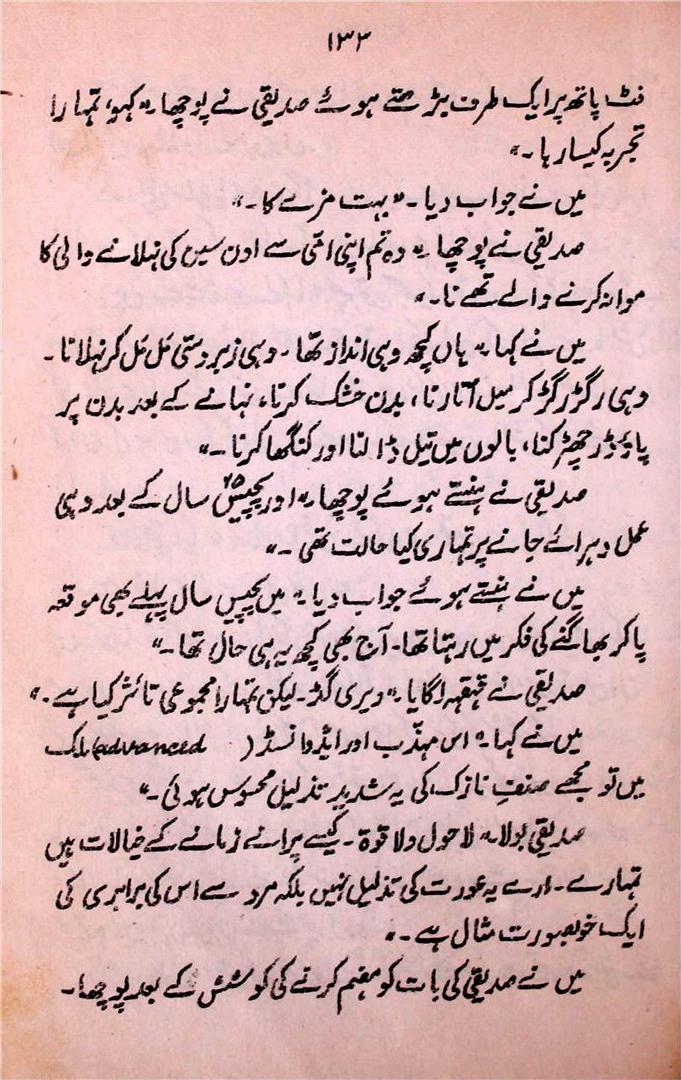 ۱۳۳
فٹ پاتھ پر ایک طرف بڑھتے ہوئے صدیقی نے پوچھا۔" کہو، تمہارا
تجربہ کیسا رہا۔"
میں نے جواب دیا۔"بہت مزے کا۔"
صدیقی نے پوچھا۔" وہ تم اپنی امّی سے اون سین کی نہلانے والی کا
موازنہ کرنے والے تھے نا۔"
میں نے کہا۔" ہاں کچھ وہی انداز تھا۔ وہی زبردستی مَل مَل کر نہلانا۔
وہی رگڑ رگڑ کر میل اُتارنا، بدن خشک کرنا، نہانے کے بعد بدن پر
پاؤڈر چھڑکنا، بالوں میں تیل ڈالنا اور کنگھا کرنا۔"
صدیقی نے ہنستے ہوئے پوچھا۔" اور پچیس ۲۵ سال کے بعد وہی
عمل دہرائے جانے پر تمہاری کیا حالت تھی۔"
میں نے ہنستے ہوئے جواب دیا۔" میں پچیس سال پہلے بھی موقعہ
پا کر بھاگنے کی فکر میں رہتا تھا۔ آج بھی کچھ یہی حال تھا۔"
صدیقی نے قہقہہ لگایا۔" ویری گڈ۔ لیکن تمہارا مجموعی تائثر کیا ہے۔"
میں نے کہا۔" اس مہذّب اور ایڈوانسڈ (advanced) ملک
میں تو مجھے صنفِ نازک کی یہ شدید تذلیل محسوس ہوئی۔"
صدیقی بولا۔" لا حول ولا قوۃ۔ کیسے پرانے زمانے کے خیالات ہیں
تمہارے۔ ارے یہ عورت کی تذلیل نہیں بلکہ مرد سے اس کی برابری کی
ایک خوبصورت مثال ہے۔"
میں نے صدیقی کی بات کو ہضم کرنے کی کوشش کے بعد پوچھا۔